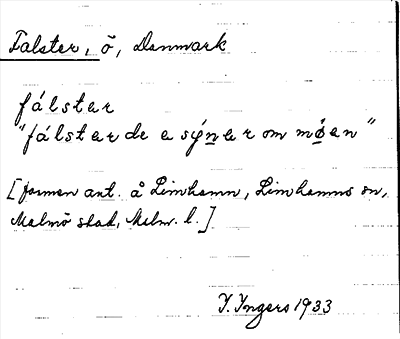 Falster, ö, Danmark
fálstər
"fálstər de e sýnər om møən"
[formen ant. å Limhamn, Limhamns sn,
Malmö stad, Malm. l.]
I. Ingers 1933